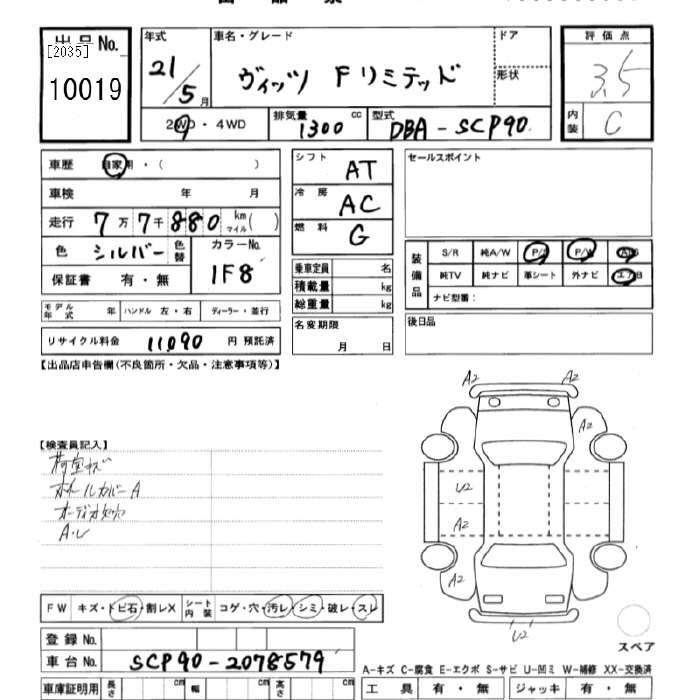 出品No.
[2035]
10019
年式
21/5月
車名・グレード
ヴィッツ Fリミテッド
ドア
形状
評価点
3.5
内装
C
2WD・4WD
排気量
1300 cc
型式
DBA-SCP90
車歴 自家用・( )
車検 年 月
走行 7万7千880 km マイル( )
色 シルバー 色替
カラーNo.
1F8
保証書 有・無
モデル年式 年 ハンドル 左・右 ディーラー・並行
リサイクル料金 11090 円 預託済
シフト AT
冷房 AC
燃料 G
乗車定員 名
積載量 kg
総重量 kg
名変期限
月 日
セールスポイント
装備品
S/R 純A/W P/S P/W ABS
純TV 純ナビ 革シート 外ナビ エアB
ナビ型番:
後日品
【出品店申告欄(不良箇所・欠品・注意事項等)】
【検査員記入】
荷室キズ
ホイールカバーA
A2 A2
A2
U2
A2
A2
U2
FW キズ・トビ石・割レX シート内装 コゲ・穴・汚レ・シミ・破レ・スレ
登録No.
車台No. SCP90-2078579
スペア
A-キズ C-腐食 E-エクボ S-サビ U-凹ミ W-補修 XX-交換済
車庫証明用 長さ cm 幅 cm 高さ cm
工具 有・無 ジャッキ 有・無